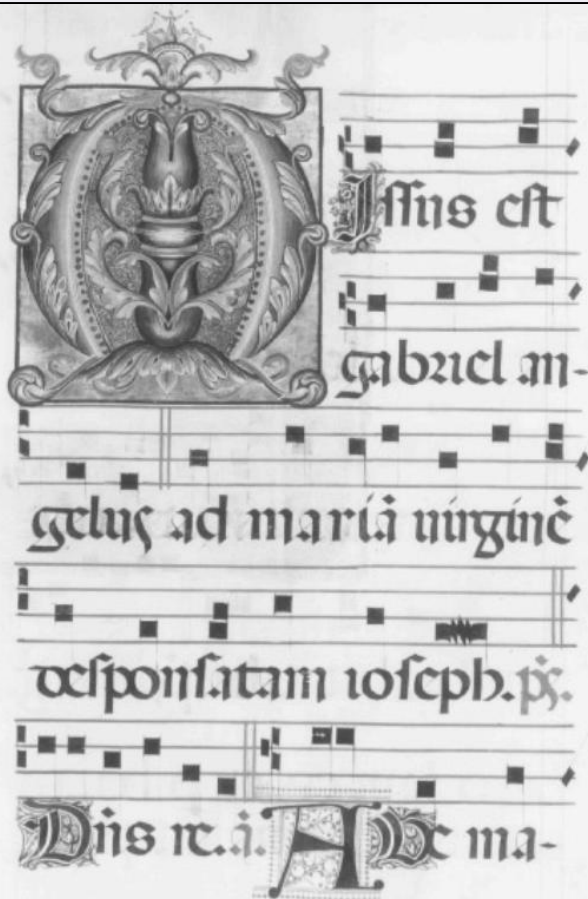 MIssus est
gabriel an-
gelus ad mariā uirginē
desponsatam ioseph. p̄s.
Dn̄s rc. ā. AVe ma-